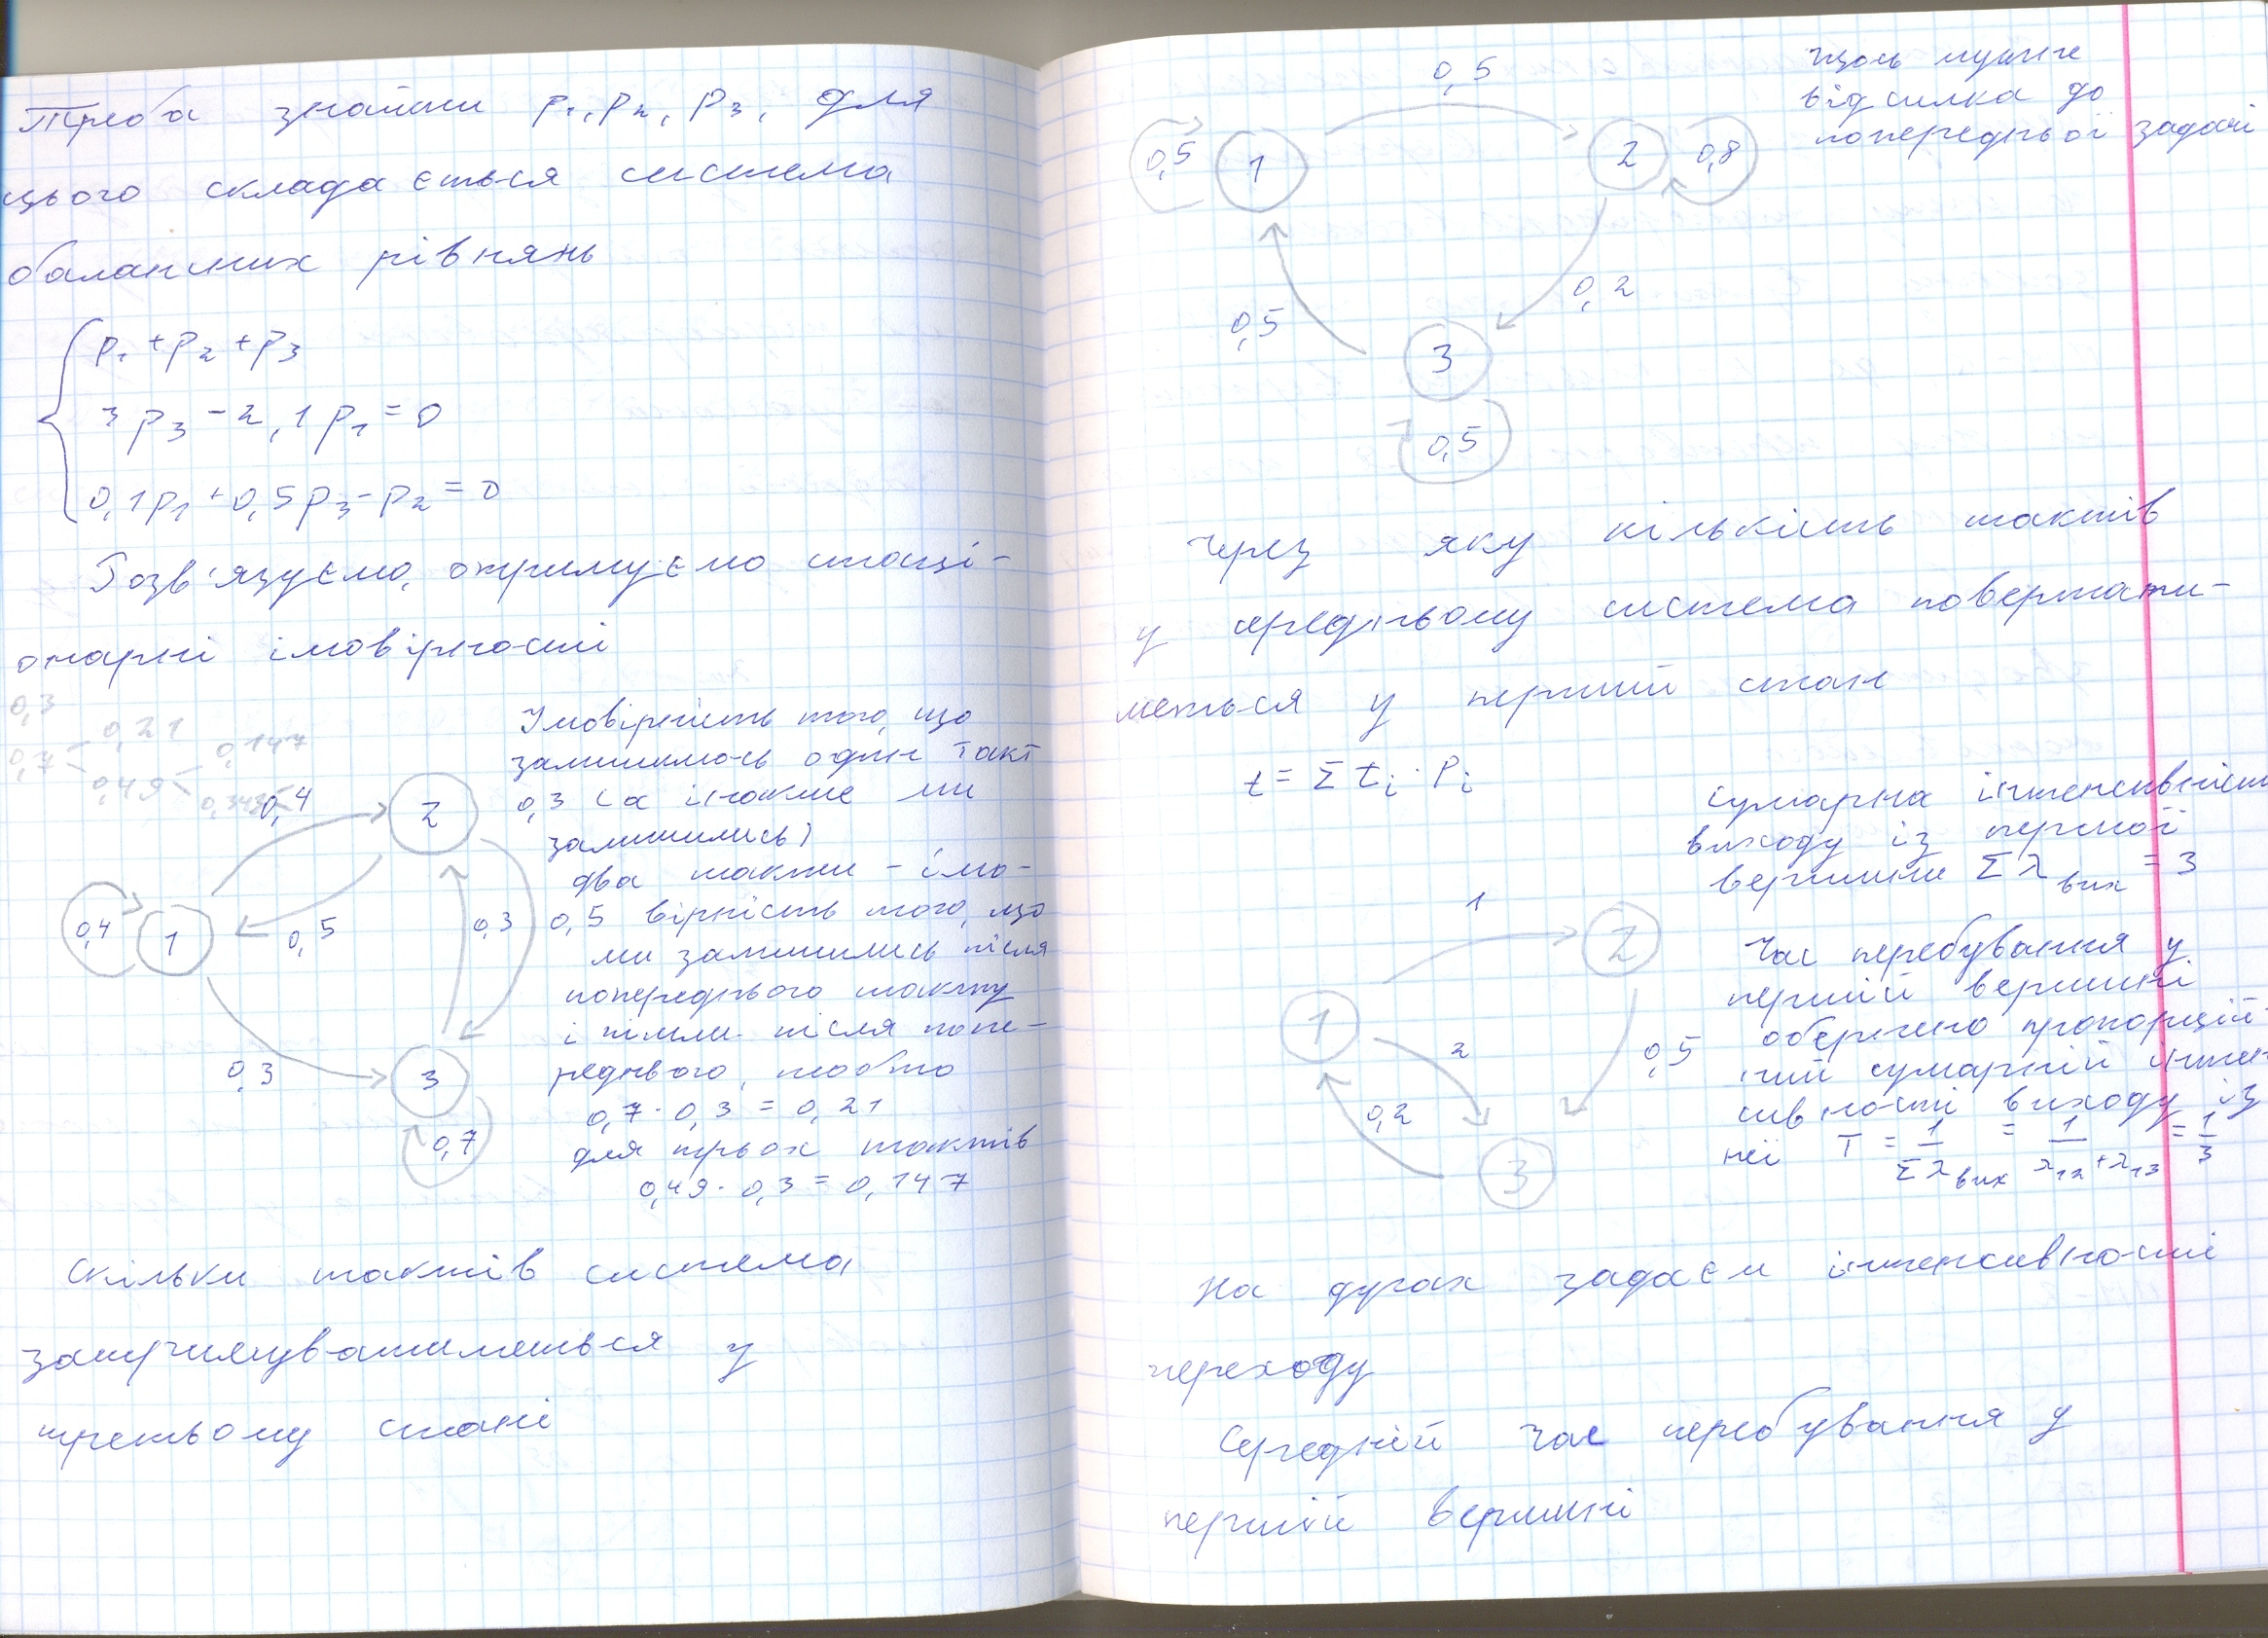 Треба знайти p₁, p₂, p₃, для
цього складається система
балансних рівнянь
p₁ + p₂ + p₃
3 p₃ - 2,1 p₁ = 0
0,1 p₁ + 0,5 p₃ - p₂ = 0
Розв'язуємо, отримуємо стаці-
онарні імовірності
0,3
0,7
0,21
0,49
0,147
0,343
0,4
2
0,4
1
0,5
0,3
0,3
3
0,7
Імовірність того, що
залишилось один такт
0,3 (а інакше ми
залишились)
два такти - імо-
0,5 вірність того, що
ми залишились після
попереднього такту
і пішли після попе-
реднього, тобто
0,7 · 0,3 = 0,21
для трьох тактів
0,49 · 0,3 = 0,147
Скільки тактів система
затримуватиметься у
третьому стані
0,5
0,5
1
2
0,8
0,2
0,5
3
0,5
відсилка до
попередньої задачі
Через яку кількість тактів
у середньому система повертати-
меться у перший стан
t = Σ tᵢ · Pᵢ
Сумарна інтенсивність
виходу із першої
вершини Σ λ вих = 3
1
2
1
2
0,5
0,2
3
Час перебування у
першій вершині
обернено пропорцій-
ний сумарній інтен
сивності виходу із
неї T = 1/Σλвих = 1/λ₁₂+λ₁₃ = 1/3
На дугах задаєм інтенсивності
переходу
Середній час перебування у
першій вершині